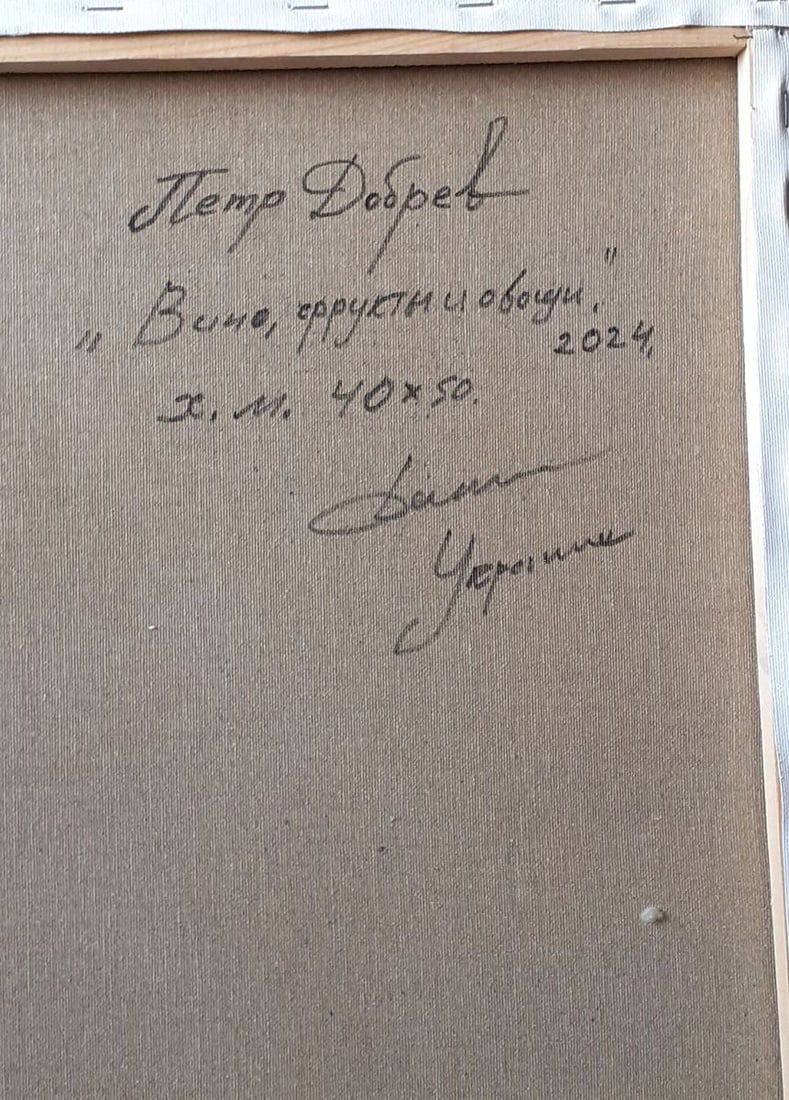 Петр Добрев
„Вино, фрукты и овощи."
2024.
х. м. 40×50.
Украина